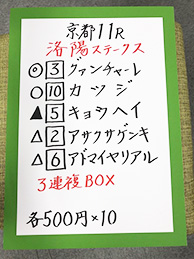 京都11R
洛陽ステークス
◎3グァンチャーレ
○10カツジ
▲5キョウヘイ
△2アサクサゲンキ
△6アドマイヤリアル
3連複BOX
各500円×10